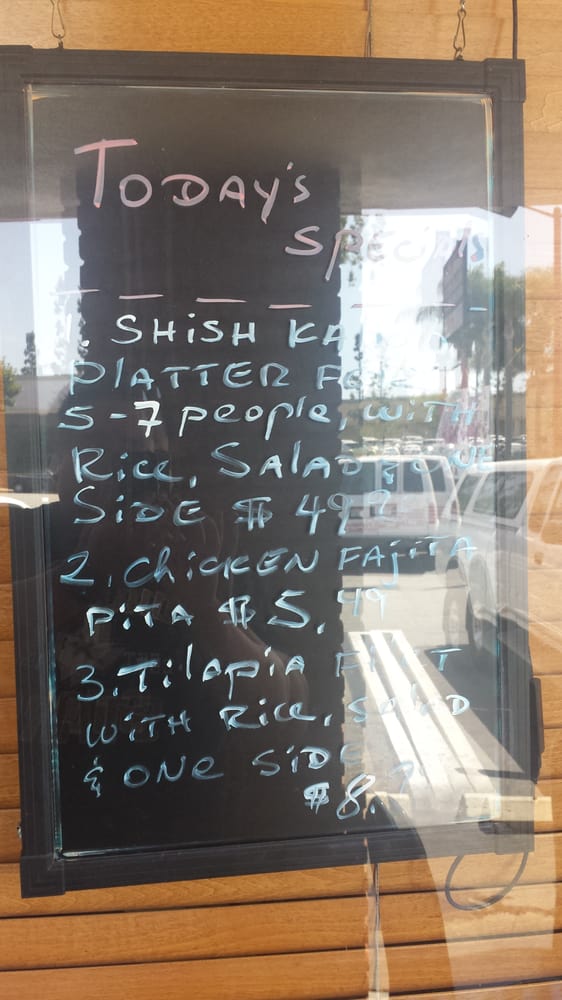 TODAY'S
SPECIALS
1. SHISH
PLATTER FOR
5-7 people, WITH
Rice, SALAD & ONE
SIDE $ 49
2. CHICKEN FAJITA
PITA $5.49
3. Tilapia
WITH Rice, SALAD
& ONE SIDE
$8.